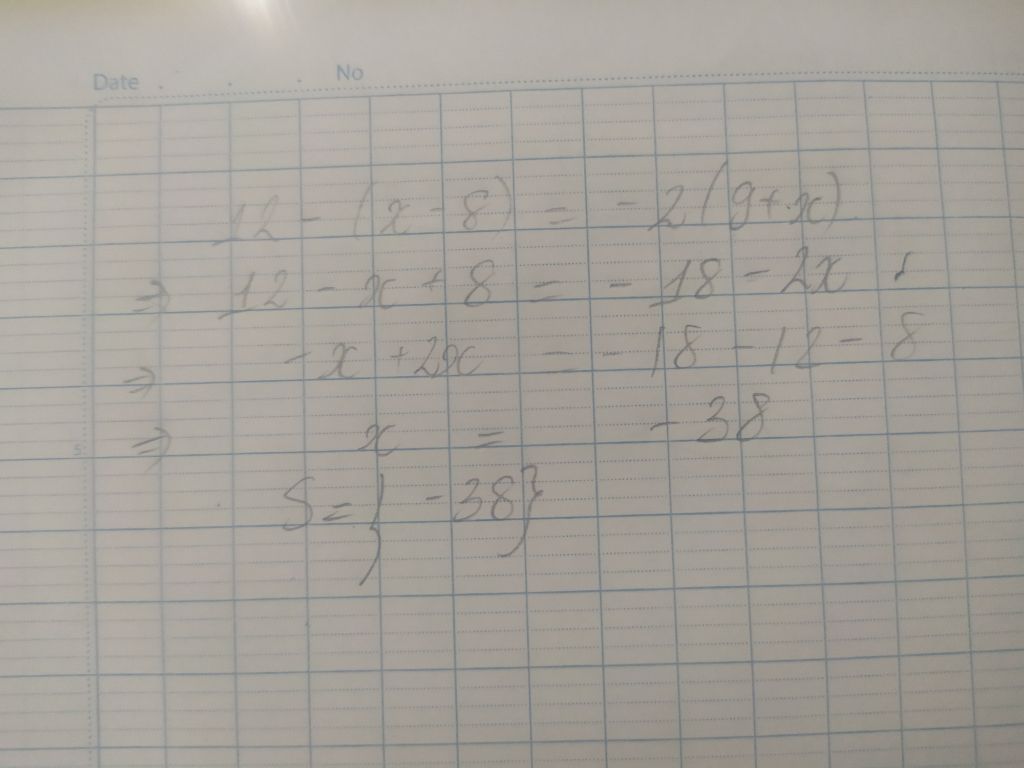 Date . . . No
12 - (x - 8) = - 2(9+x)
=> 12 - x + 8 = - 18 - 2x
=> - x + 2x = - 18 - 12 - 8
5 => x = - 38
S = { - 38}